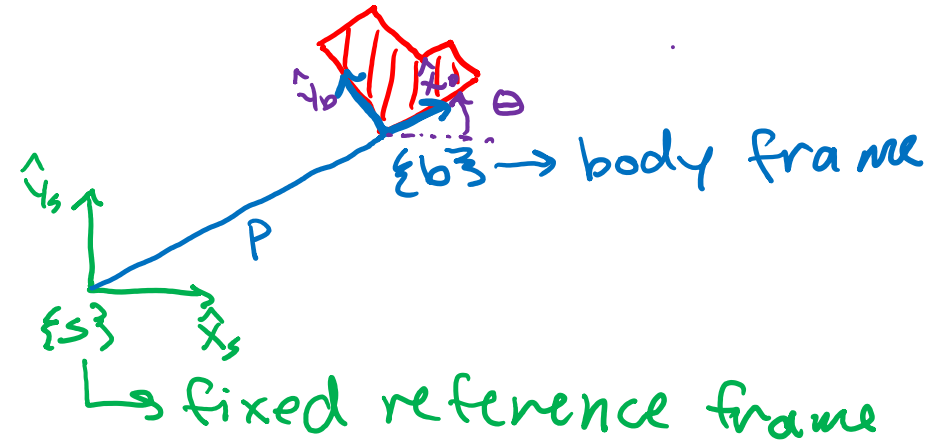 ŷb
x̂b
θ
{b} → body frame
ŷs
P
{s}
x̂s
fixed reference frame